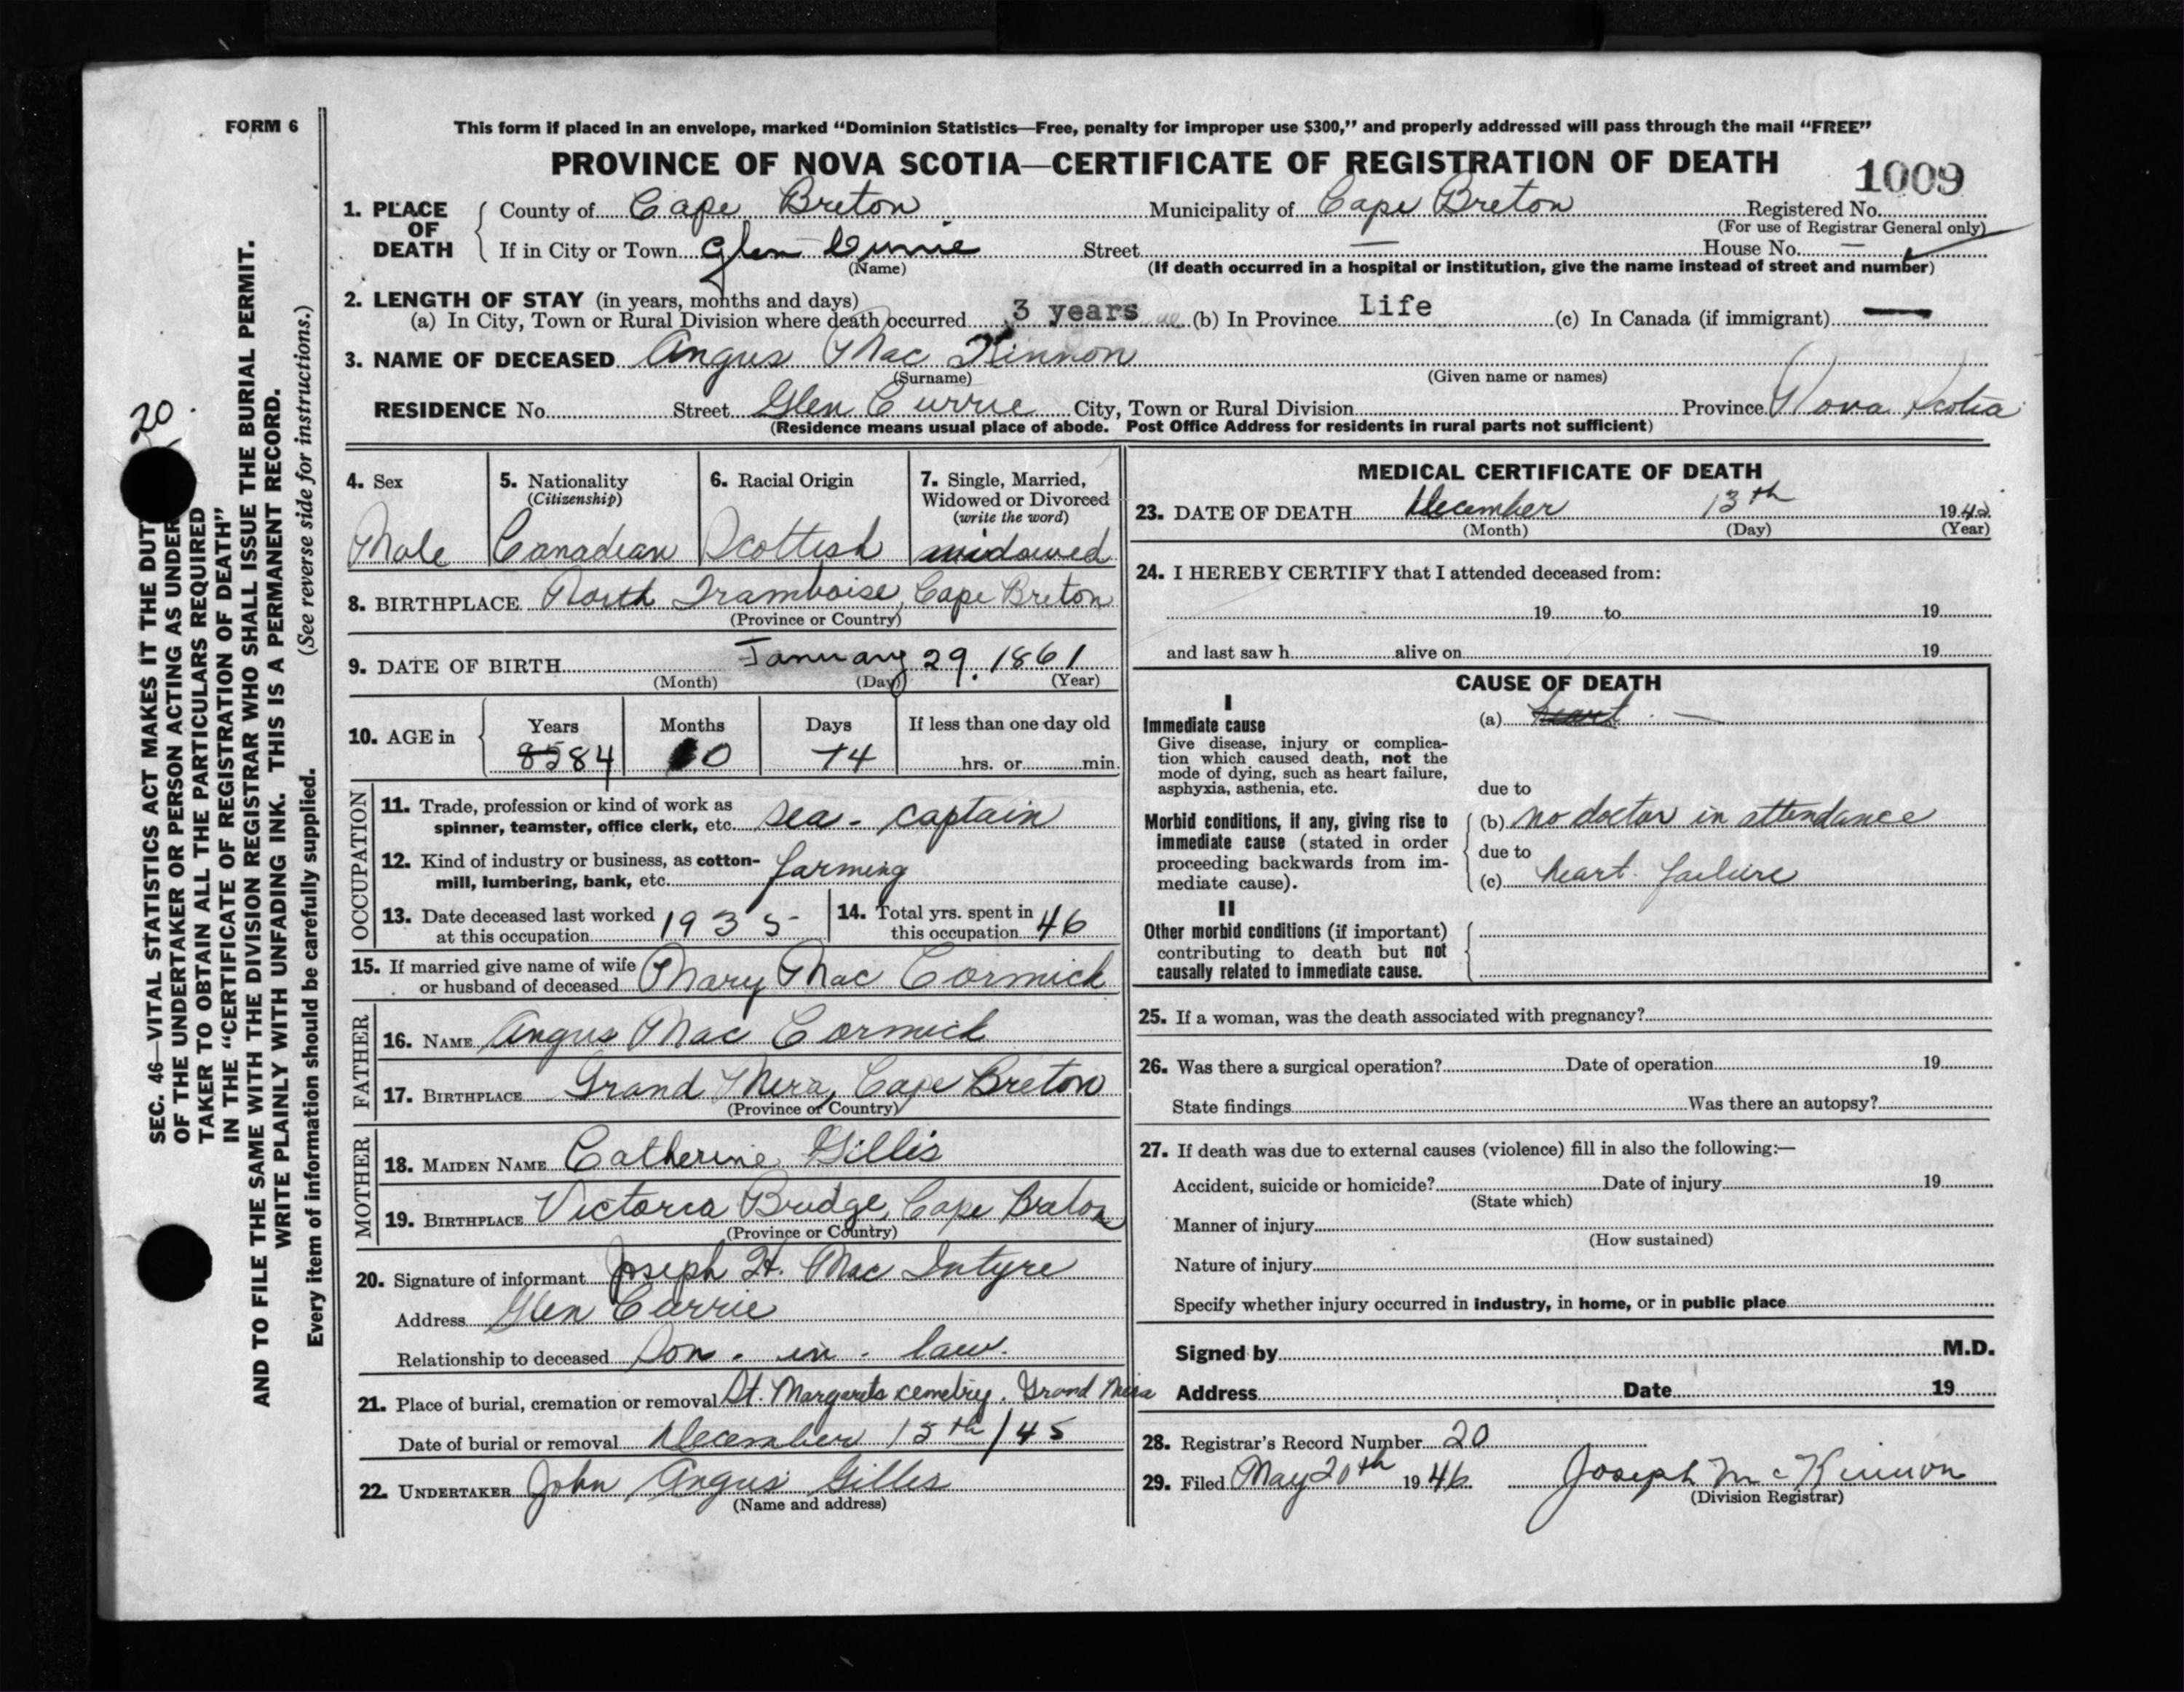 FORM 6
This form if placed in an envelope, marked “Dominion Statistics—Free, penalty for improper use $300,” and properly addressed will pass through the mail “FREE”
PROVINCE OF NOVA SCOTIA—CERTIFICATE OF REGISTRATION OF DEATH
1009
1. PLACE OF DEATH { County of Cape Breton Municipality of Cape Breton Registered No.
(For use of Registrar General only)
If in City or Town Glen Currie Street — House No. —
(Name) (If death occurred in a hospital or institution, give the name instead of street and number)
2. LENGTH OF STAY (in years, months and days)
(a) In City, Town or Rural Division where death occurred 3 years (b) In Province Life (c) In Canada (if immigrant) —
3. NAME OF DECEASED Angus Mac Kinnon
(Surname) (Given name or names)
RESIDENCE No. Street Glen Currie City, Town or Rural Division Province Nova Scotia
(Residence means usual place of abode. Post Office Address for residents in rural parts not sufficient)
4. Sex
Male
5. Nationality
(Citizenship)
Canadian
6. Racial Origin
Scottish
7. Single, Married,
Widowed or Divorced
(write the word)
widowed
8. BIRTHPLACE North Framboise, Cape Breton
(Province or Country)
9. DATE OF BIRTH January 29. 1861
(Month) (Day) (Year)
10. AGE in { Years Months Days If less than one day old
85 84 10 14 hrs. or min.
OCCUPATION
11. Trade, profession or kind of work as
spinner, teamster, office clerk, etc. sea - captain
12. Kind of industry or business, as cotton-
mill, lumbering, bank, etc. farming
13. Date deceased last worked
at this occupation 1935
14. Total yrs. spent in
this occupation 46
15. If married give name of wife
or husband of deceased Mary Mac Cormick
FATHER
16. NAME Angus Mac Cormick
17. BIRTHPLACE Grand Mira, Cape Breton
(Province or Country)
MOTHER
18. MAIDEN NAME Catherine Gillis
19. BIRTHPLACE Victoria Bridge, Cape Breton
(Province or Country)
20. Signature of informant Joseph H. Mac Intyre
Address Glen Currie
Relationship to deceased Son - in - law.
21. Place of burial, cremation or removal St. Margarets cemetry. Grand Mira
Date of burial or removal December 15th/45
22. UNDERTAKER John Angus Gillis
(Name and address)
MEDICAL CERTIFICATE OF DEATH
23. DATE OF DEATH December 13th 19
(Month) (Day) (Year)
24. I HEREBY CERTIFY that I attended deceased from:
19 to 19
and last saw h alive on 19
CAUSE OF DEATH
I
Immediate cause
Give disease, injury or complica-
tion which caused death, not the
mode of dying, such as heart failure,
asphyxia, asthenia, etc.
(a) heart —
due to
Morbid conditions, if any, giving rise to
immediate cause (stated in order
proceeding backwards from im-
mediate cause).
(b) no doctor in attendance
due to
(c) heart failure
II
Other morbid conditions (if important)
contributing to death but not
causally related to immediate cause.
25. If a woman, was the death associated with pregnancy?
26. Was there a surgical operation? Date of operation 19
State findings Was there an autopsy?
27. If death was due to external causes (violence) fill in also the following:—
Accident, suicide or homicide? Date of injury 19
(State which)
Manner of injury
(How sustained)
Nature of injury
Specify whether injury occurred in industry, in home, or in public place
Signed by M.D.
Address Date 19
28. Registrar's Record Number 20
29. Filed May 20th 1946 Joseph McKinnon
(Division Registrar)
20.
SEC. 46—VITAL STATISTICS ACT MAKES IT THE DUT
OF THE UNDERTAKER OR PERSON ACTING AS UNDER
TAKER TO OBTAIN ALL THE PARTICULARS REQUIRED
IN THE “CERTIFICATE OF REGISTRATION OF DEATH”
AND TO FILE THE SAME WITH THE DIVISION REGISTRAR WHO SHALL ISSUE THE BURIAL PERMIT.
WRITE PLAINLY WITH UNFADING INK. THIS IS A PERMANENT RECORD.
Every item of information should be carefully supplied. (See reverse side for instructions.)